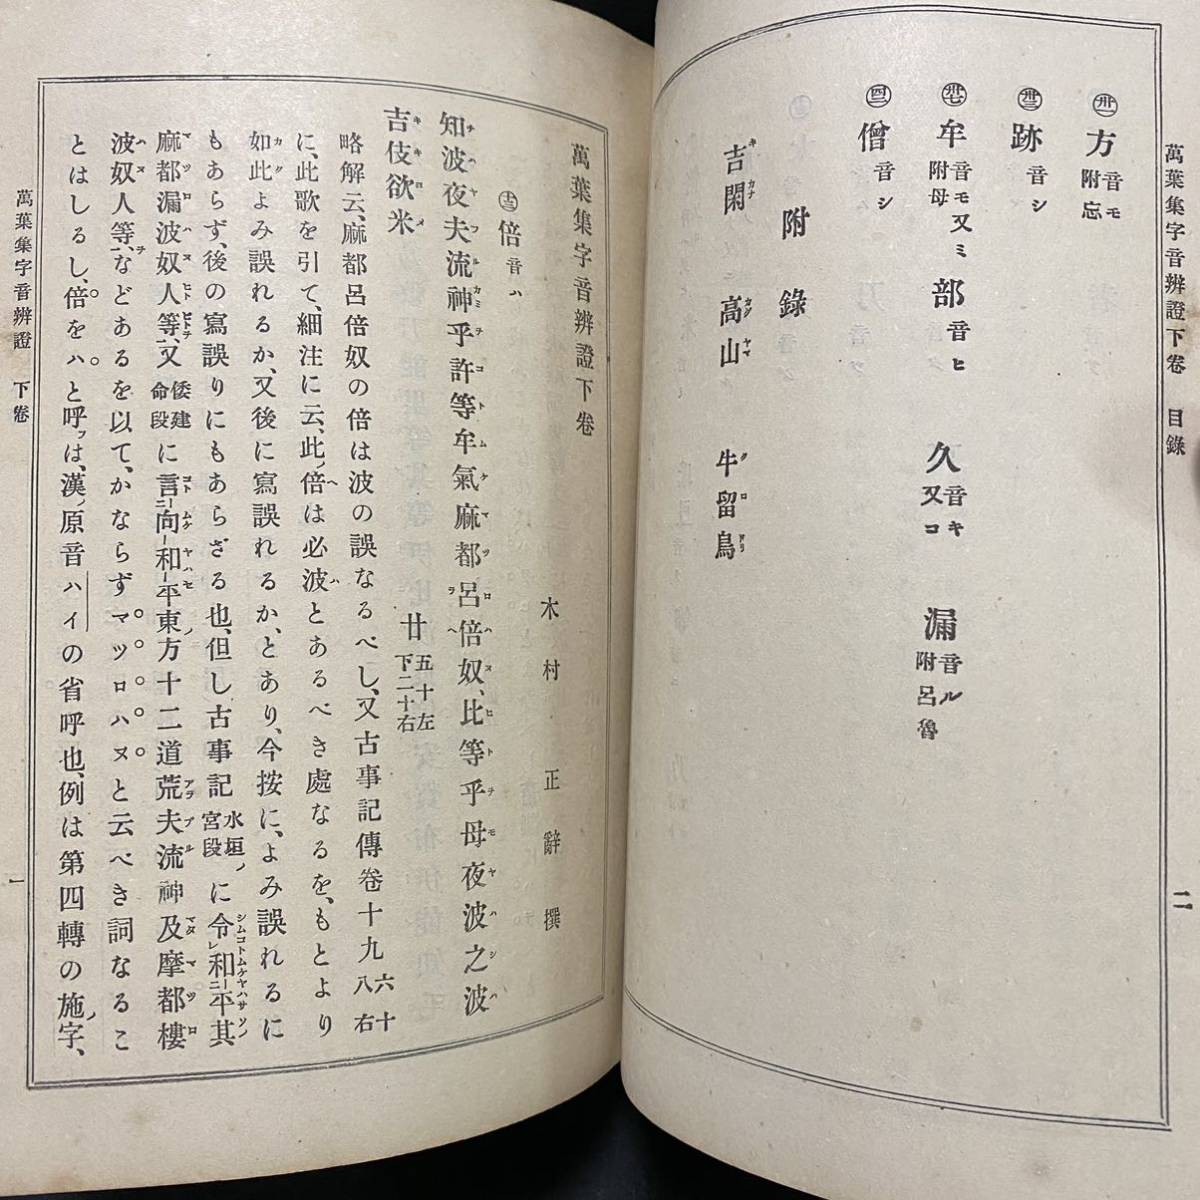 萬葉集字音辨證下卷　目錄
二
㊶ 方 音モ 附忘
跡 音シ
牟 音モ又ミ 附母　部 音ヒ　久 音キ 又コ　漏 音ル 附呂魯
僧 音シ
附錄
吉閑 キカナ　高山 カグヤマ　牛留鳥 クロドリ
萬葉集字音辨證下卷
木村正辭撰
倍 音ハ
知波夜夫流神乎許等牟氣麻都呂倍奴、比等乎母夜波之波
吉伎欲米 廿 五十左 下二十右
略解云、麻都呂倍奴の倍は波の誤なるべし、又古事記傳卷十九 六十八右
に、此歌を引て、細注に云、此ノ倍は必波とあるべき處なるを、もとより
如此よみ誤れるか、又後に寫誤れるか、とあり、今按に、よみ誤れるに
もあらず、後の寫誤りにもあらざる也、但し古事記 水垣ノ宮段 に令レ和二平其
麻都漏波奴人等、又 倭建命段 に言二向一和二平東方十二道荒夫流神及摩都樓
波奴人等、などあるを以て、かならずマツロハヌと云べき詞なるこ
とはしるし、倍をハと呼フは、漢ノ原音ハイの省呼也、例は第四轉の施ノ字、
萬葉集字音辨證　下卷
一